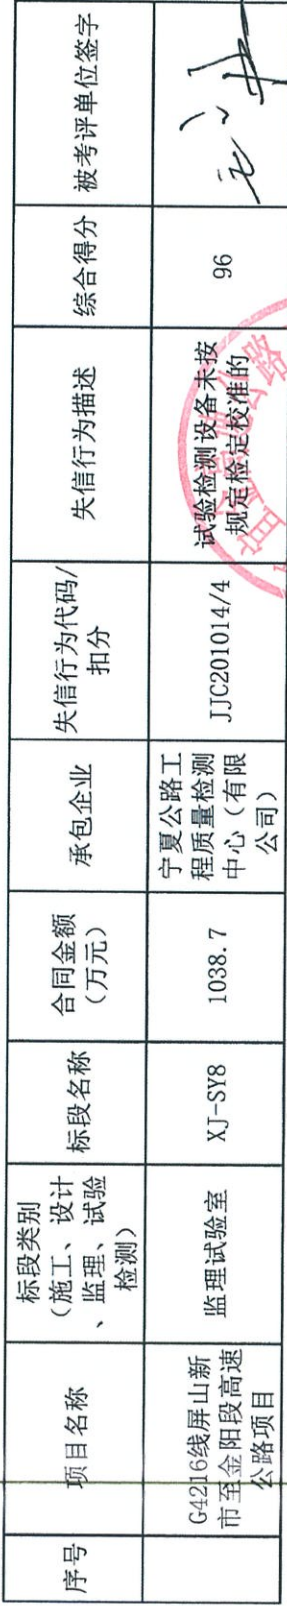 序号
项目名称
标段类别
（施工、设计
、监理、试验
检测）
标段名称
合同金额
（万元）
承包企业
失信行为代码/
扣分
失信行为描述
综合得分
被考评单位签字
G4216线屏山新
市至金阳段高速
公路项目
监理试验室
XJ-SY8
1038.7
宁夏公路工
程质量检测
中心（有限
公司）
JJC201014/4
试验检测设备未按
规定检定校准的
96